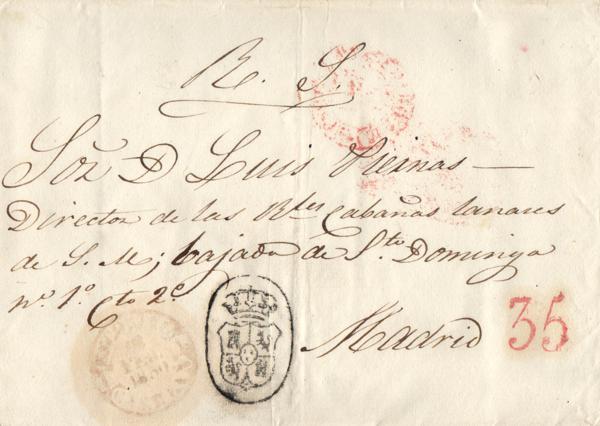 R. S.
Sor D Luis
Director de las Rles Cabañas lanares
de S. M; bajada de Sto Domingo
no. 1o. cto 2o
Madrid 35